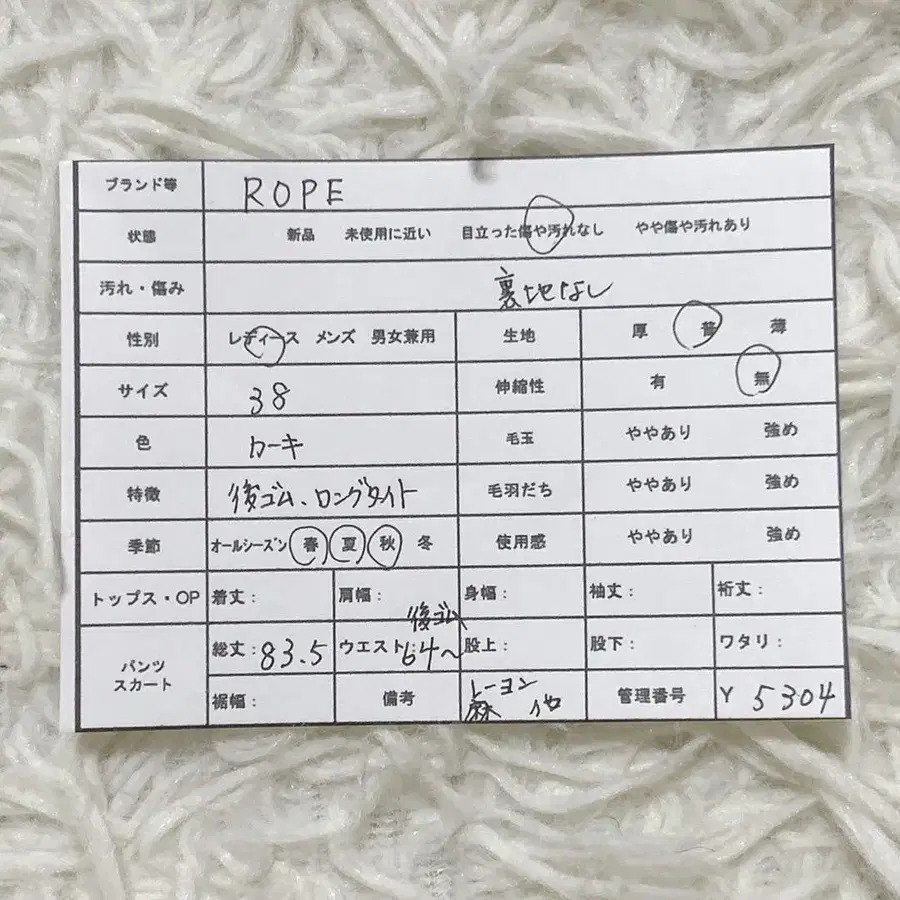 ブランド等 ROPE
状態 新品 未使用に近い 目立った傷や汚れなし やや傷や汚れあり
汚れ・傷み 裏地なし
性別 レディース メンズ 男女兼用 生地 厚 普 薄
サイズ 38 伸縮性 有 無
色 カーキ 毛玉 ややあり 強め
特徴 後ゴム、ロングタイト 毛羽だち ややあり 強め
季節 オールシーズン 春 夏 秋 冬 使用感 ややあり 強め
トップス・OP 着丈: 肩幅: 身幅: 袖丈: 裄丈:
後ゴム
パンツ スカート 総丈:83.5 ウエスト:64〜 股上: 股下: ワタリ:
裾幅: 備考 トーヨン 麻 他 管理番号 Y 5304